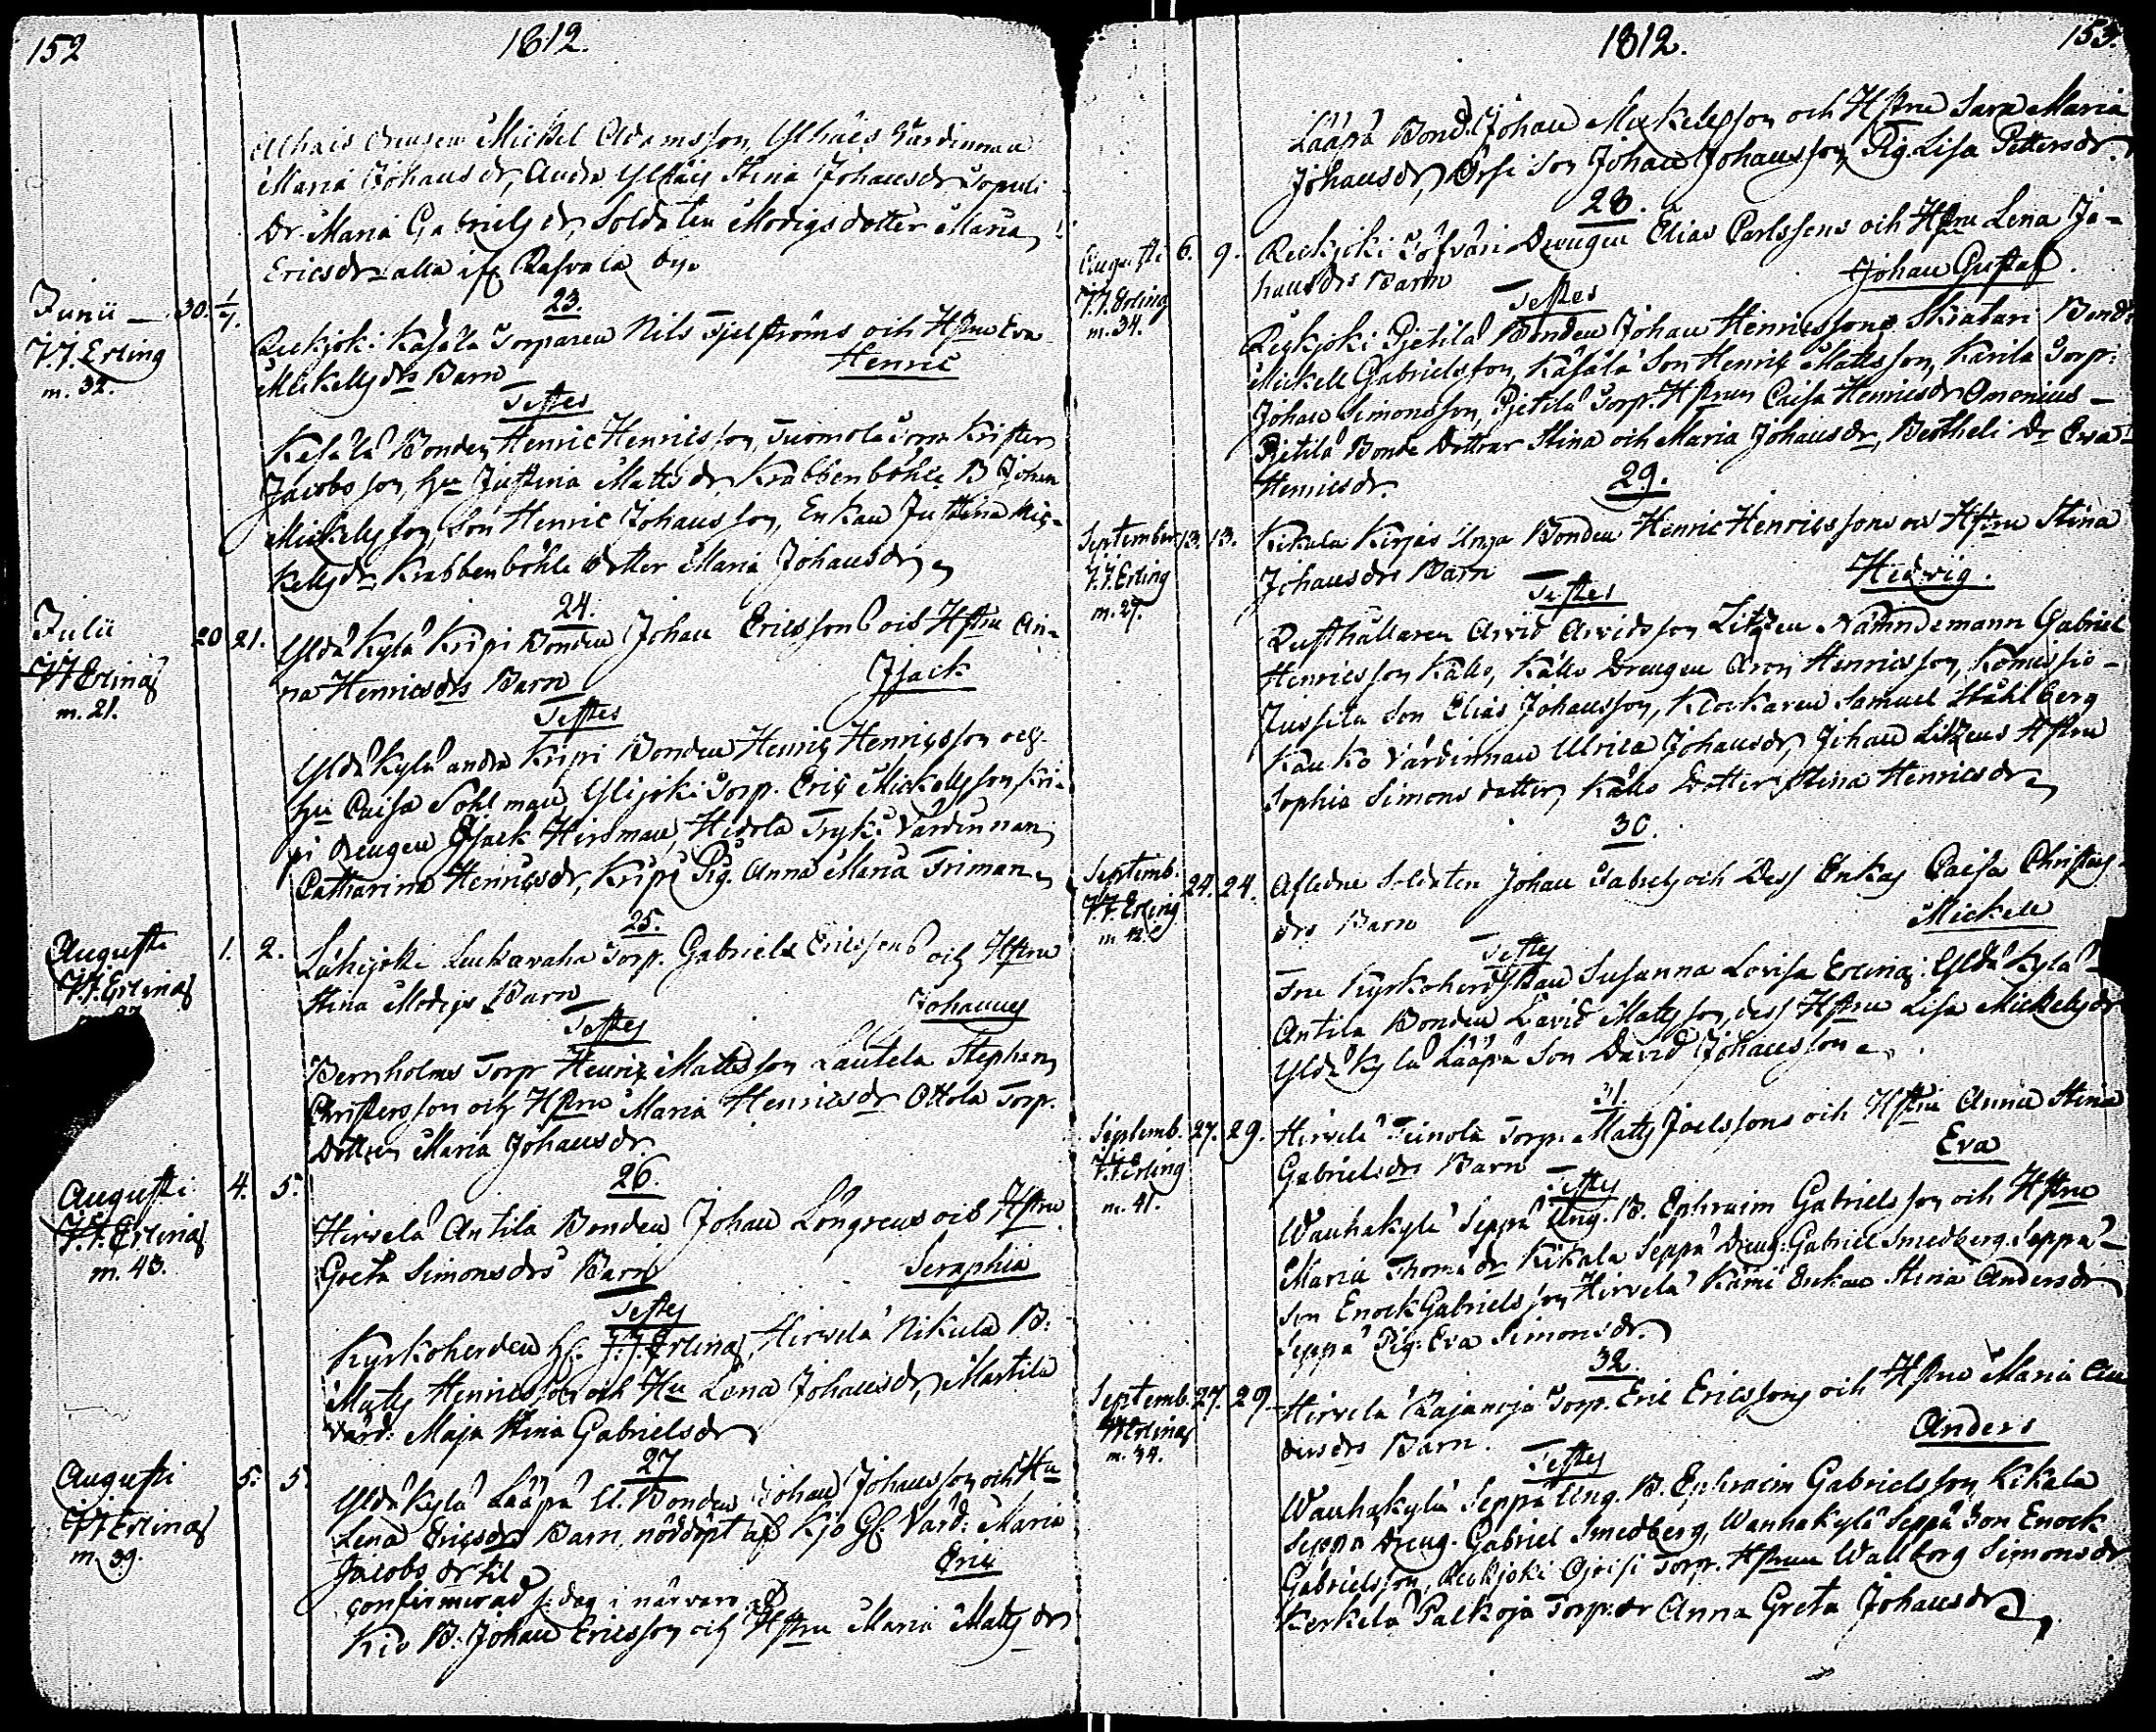 152
1812.
Drengen Mickel Adamsson, Ylhäis Värdinnan
Maria Johansdr, Andra Ylhäis Stina Johansdr
Dr. Maria Gabrielsdr, Soldaten Modigs dotter Maria
Ericsdr alla if by.
23.
Junii 30. 1/7.
J.J. Erling
m. 32.
Reckjoki Käsälä Torparen Nils och Hstru Eva
Mickellsdrs Barn Henric
Testes
Käsälä Bonden Henric Henricsson, Tuomola Torp. Krister
Jacobsson, Hu Justina Mattsdr, Krabbenböhle B. Johan
Mickellsson, Son Henric Johansson, Enkan Justina Mic-
kellsdr Krabbenböhle dotter Maria Johansdr
24.
Julii 20 21.
J.J. Erling
m. 21.
Yldäkylä Kripi Bonden Johan Ericssons och Hstru An-
na Henricsdrs Barn Isack
Testes
Yldäkylä andra Kripi Bonden Henric Henricsson och
Hu Caisa Sohlman, Ylijoki Torp. Eric Mickellsson, Kri-
pi Drengen Isack Hirsman, Hidola Tryki Värdinnan
Catharina Henricsdr, Kripi Pig. Anna Maria Friman
25.
Augusti 1. 2.
J.J. Erling
Lähijoki Torp. Gabriel Ericssons och Hstru
Stina Modigs Barn Johannes
Testes
Bernholms Torp Henric Mattsson Lautela Stephan
Christersson och Hstru Maria Henricsdr Ottola Torp.
Dottren Maria Johansdr.
26.
Augusti 4. 5.
J.J. Erling
m. 43.
Hirvelä Antila Bonden Johan Löngrens och Hstru
Greta Simonsdrs Barn Seraphia
Testes
Kyrkoherden Hr. J.J. Erling, Hirvelä Nikula B.
Matts Henricsson och Hu Lena Johansdr, Martila
Värd: Maja Stina Gabrielsdr
27
Augusti 5. 5
J.J. Erling
m. 39.
Yldäkylä Lääpä U. Bonden Johan Johansson och Hu
Lena Ericsdrs Barn, nöddöpt af Kjo Gl. Värd: Maria
Jacobsdr til Eric
confirmerad s. dag i närvaro af
Kio B. Johan Ericsson och Hstru Maria Mattsdr
1812.
153.
Lääpä Bond. Johan Mickellsson och Hstru Sara Maria
Johansdr, Orsi Son Johan Johansson, Pig. Lisa Pettersdr.
28.
Augusti 6. 9.
J.J. Erling
m. 34.
Reckjoki Löfväri Drengen Elias Carlssons och Hstru Lena Jo-
hansdrs Barn Johan Gustaf.
Testes
Reckjoki Pietilä Bonden Johan Henricsson, Skiatari Bond.
Mickell Gabrielsson, Käsälä Son Henric Mattsson, Karila Torp:
Johan Simonsson, Pietilä Torp. Hstrun Caisa Henricsdr
Pietilä Bonde Dottrar Stina och Maria Johansdr, Bertheli Dr Eva
Henricsdr.
29.
September 13. 13.
J.J. Erling
m. 27.
Kikala Kirjas Unga Bonden Henric Henricssons och Hstru Stina
Johansdrs Barn Hedvig.
Testes
Rusthållaren Arvid Arvidsson Litzen Nämndemann Gabriel
Henricsson Källo, Källo Drengen Aron Henricsson,
Jussila Son Elias Johansson, Klockaren Samuel Ståhlberg
Kauko Värdinnan Ulrica Johansdr, Johan Litzens Hstru
Sophia Simons dotter, Källo Dotter Stina Henricsdr
30.
Septemb. 24. 24.
J.J. Erling
m. 42.
Afledne Soldaten Johan och Dess Enkas Caisa Christers-
drs Barn Mickell
Testes
Fru Kyrkoherdskan Susanna Lovisa Erling: Yldäkylä
Antila Bonden David Mattsson, dess Hstru Lisa Mickellsdr
Yldäkylä Lääpä Son David Johansson
31.
Septemb. 27. 29.
J.J. Erling
m. 41.
Hirvelä Torp. Matts Joelssons och Hstru Anna Stina
Gabrielsdrs Barn Eva
Testes
Wanhakylä Seppä Ung. B. Ephraim Gabrielsson och Hstru
Maria Thomædr Kikala Seppä Dreng: Gabriel Smedberg. Seppä
Son Enock Gabrielsson, Hirvelä Rämi Enkan Stina Andersdr
Seppä Pig. Eva Simonsdr.
32.
Septemb. 27. 29.
J.J. Erling
m. 34.
Hirvelä Rajanoja Torp. Eric Ericssons och Hstru Maria An-
dersdrs Barn. Anders
Testes
Wanhakylä Seppä Ung. B. Ephraim Gabrielsson, Kikala
Seppä Dreng. Gabriel Smedberg, Wanhakylä Seppä Son Enock
Gabrielsson, Reckjoki Torp. Hstrun Walborg Simonsdr
Kerkelä Palkoja Torp: dr Anna Greta Johansdr